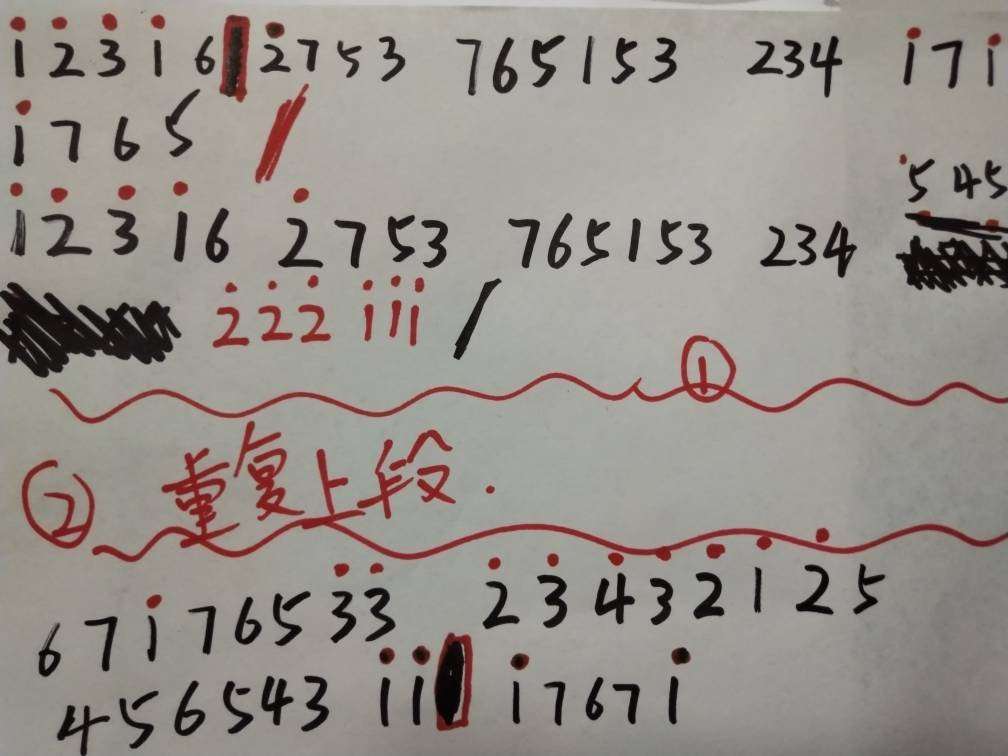 i̇ 2̇ 3̇ i̇ 6 2̇753 765153 234 i̇7i̇
i̇765 /
i̇2̇3̇i̇6 2̇753 765153 234 545
2̇2̇2̇ i̇i̇i̇ /
①
② 重复上段.
67i̇7653̇3̇ 2̇3̇4̇3̇2̇i̇2̇5
456543 i̇i̇ i̇767i̇